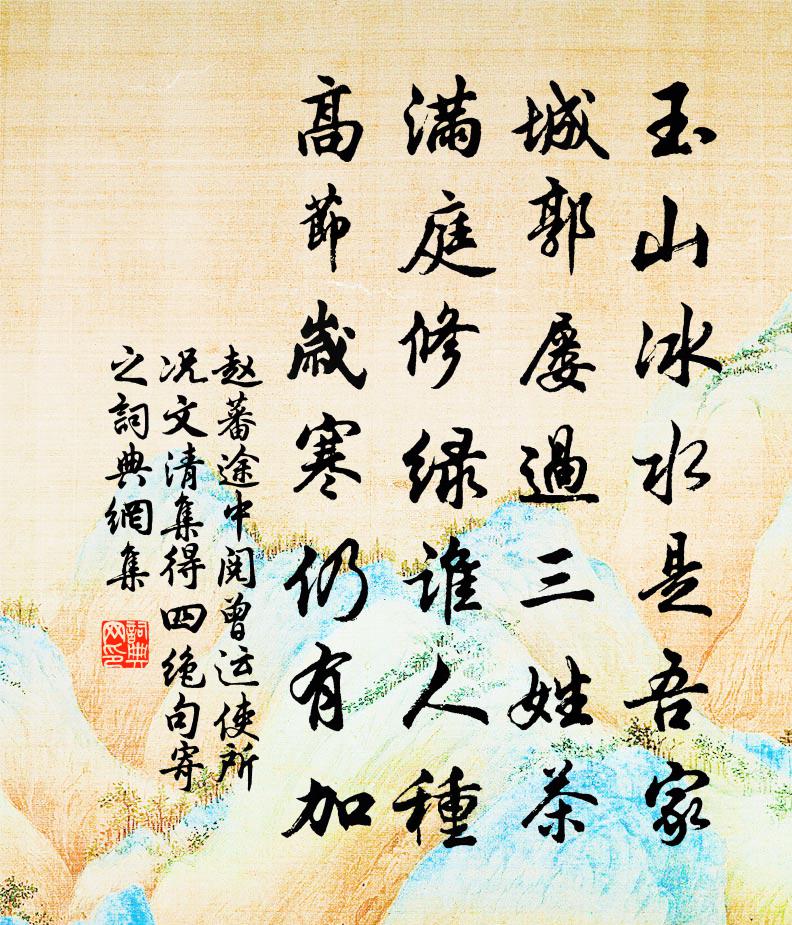 玉山冰水是吾家
城郭屡過三姓茶
滿庭修绿谁人種
高節歲寒仍有加
赵蕃途中阅曾运使所
况文清集得四绝句寄
之詞典網集
詞典网印